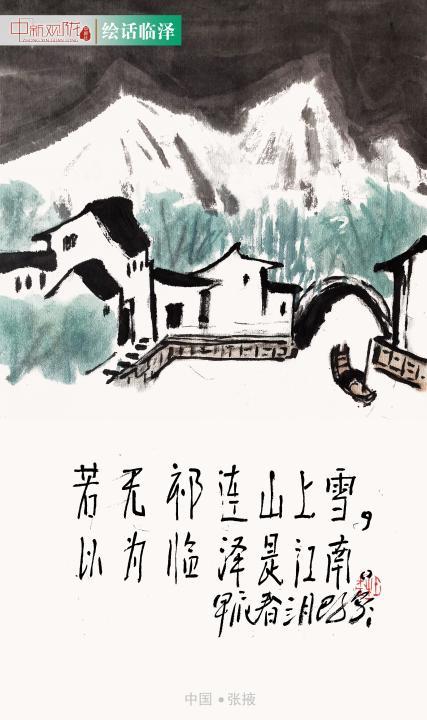 中新观陇
ZHONG XIN GUAN LONG
绘话临泽
若无祁连山上雪，
以为临泽是江南。
甲辰春三月
中国●张掖